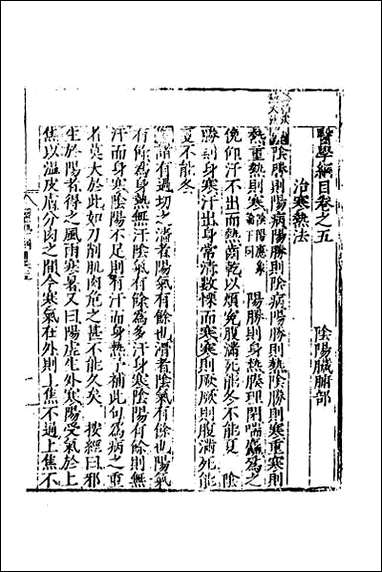 醫學綱目卷之五　陰陽臟腑部
治寒熱法
陰勝則陽病陽勝則陰病陽勝則熱陰勝則寒重寒則
熱重熱則寒陰陽應象論下同　陽勝則身熱腠理閉喘麤為之
俛仰汗不出而熱齒乾以煩冤腹滿死能冬不能夏　陰
勝則身寒汗出身常清數慄而寒寒則厥厥則腹滿死能
夏不能冬
諸有過切之濇者陽氣有餘也滑者陰氣有餘也陽氣
有餘為身熱無汗陰氣有餘為多汗身寒陰陽有餘則無
汗而身寒陰陽不足則有汗而身熱了補此句為病之重
者莫大於此如刀削肌肉危之甚不能久矣　按經曰邪
生於陽者得之風雨寒暑又曰陽虛生外寒陽受氣於上
焦以溫皮膚分肉之間今寒氣在外則上焦不通上焦不